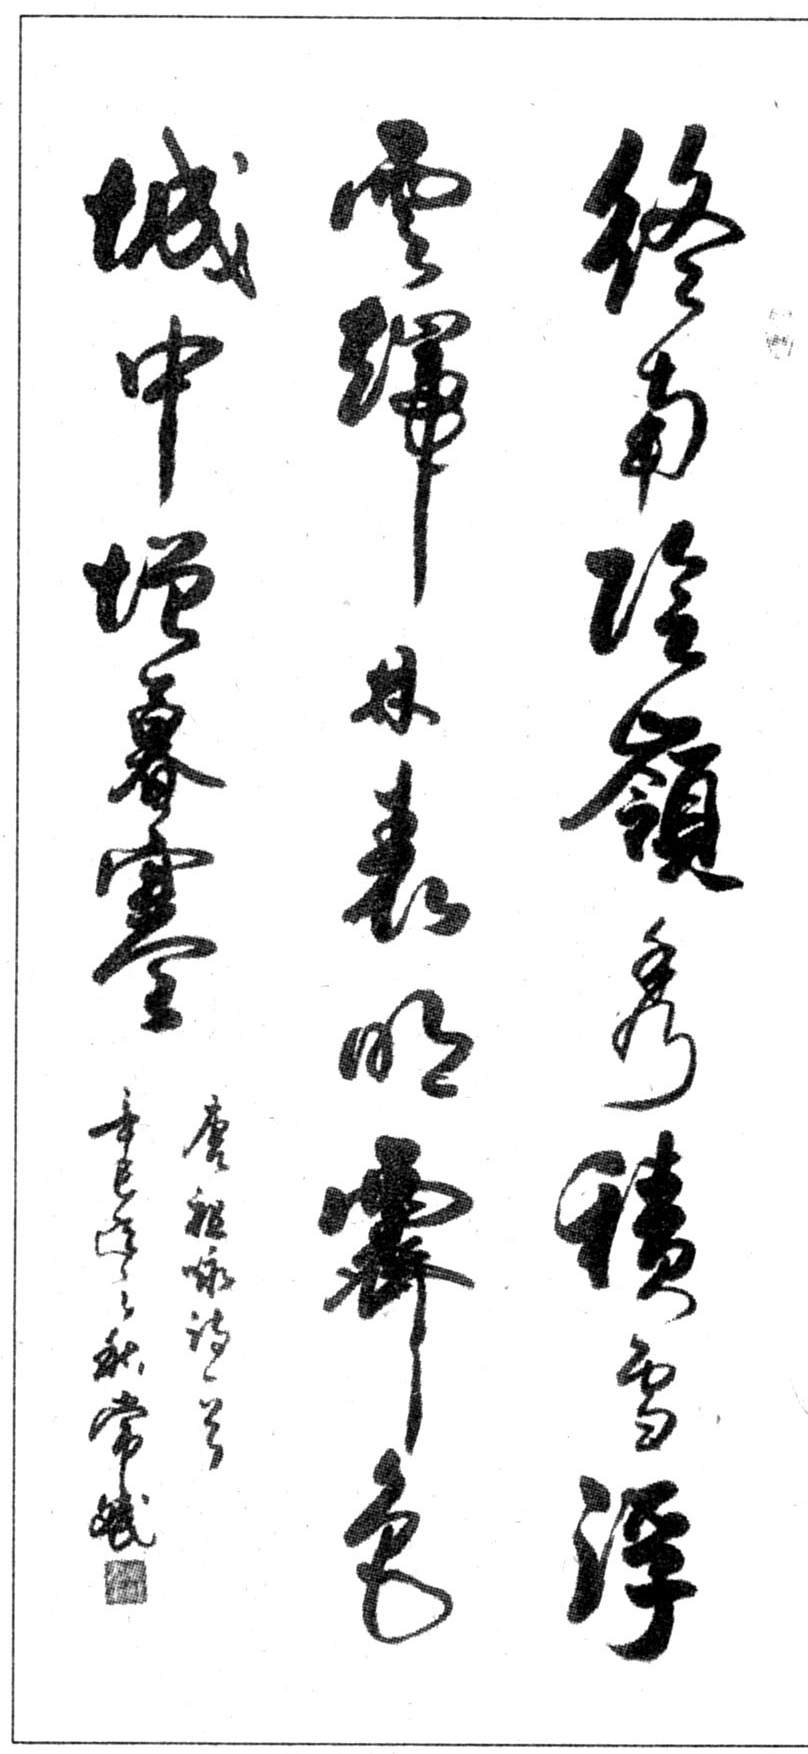 終南陰嶺秀積雪浮
雲端林表明霽色
城中增暮寒
唐祖詠詩一首
辛巳之秋常